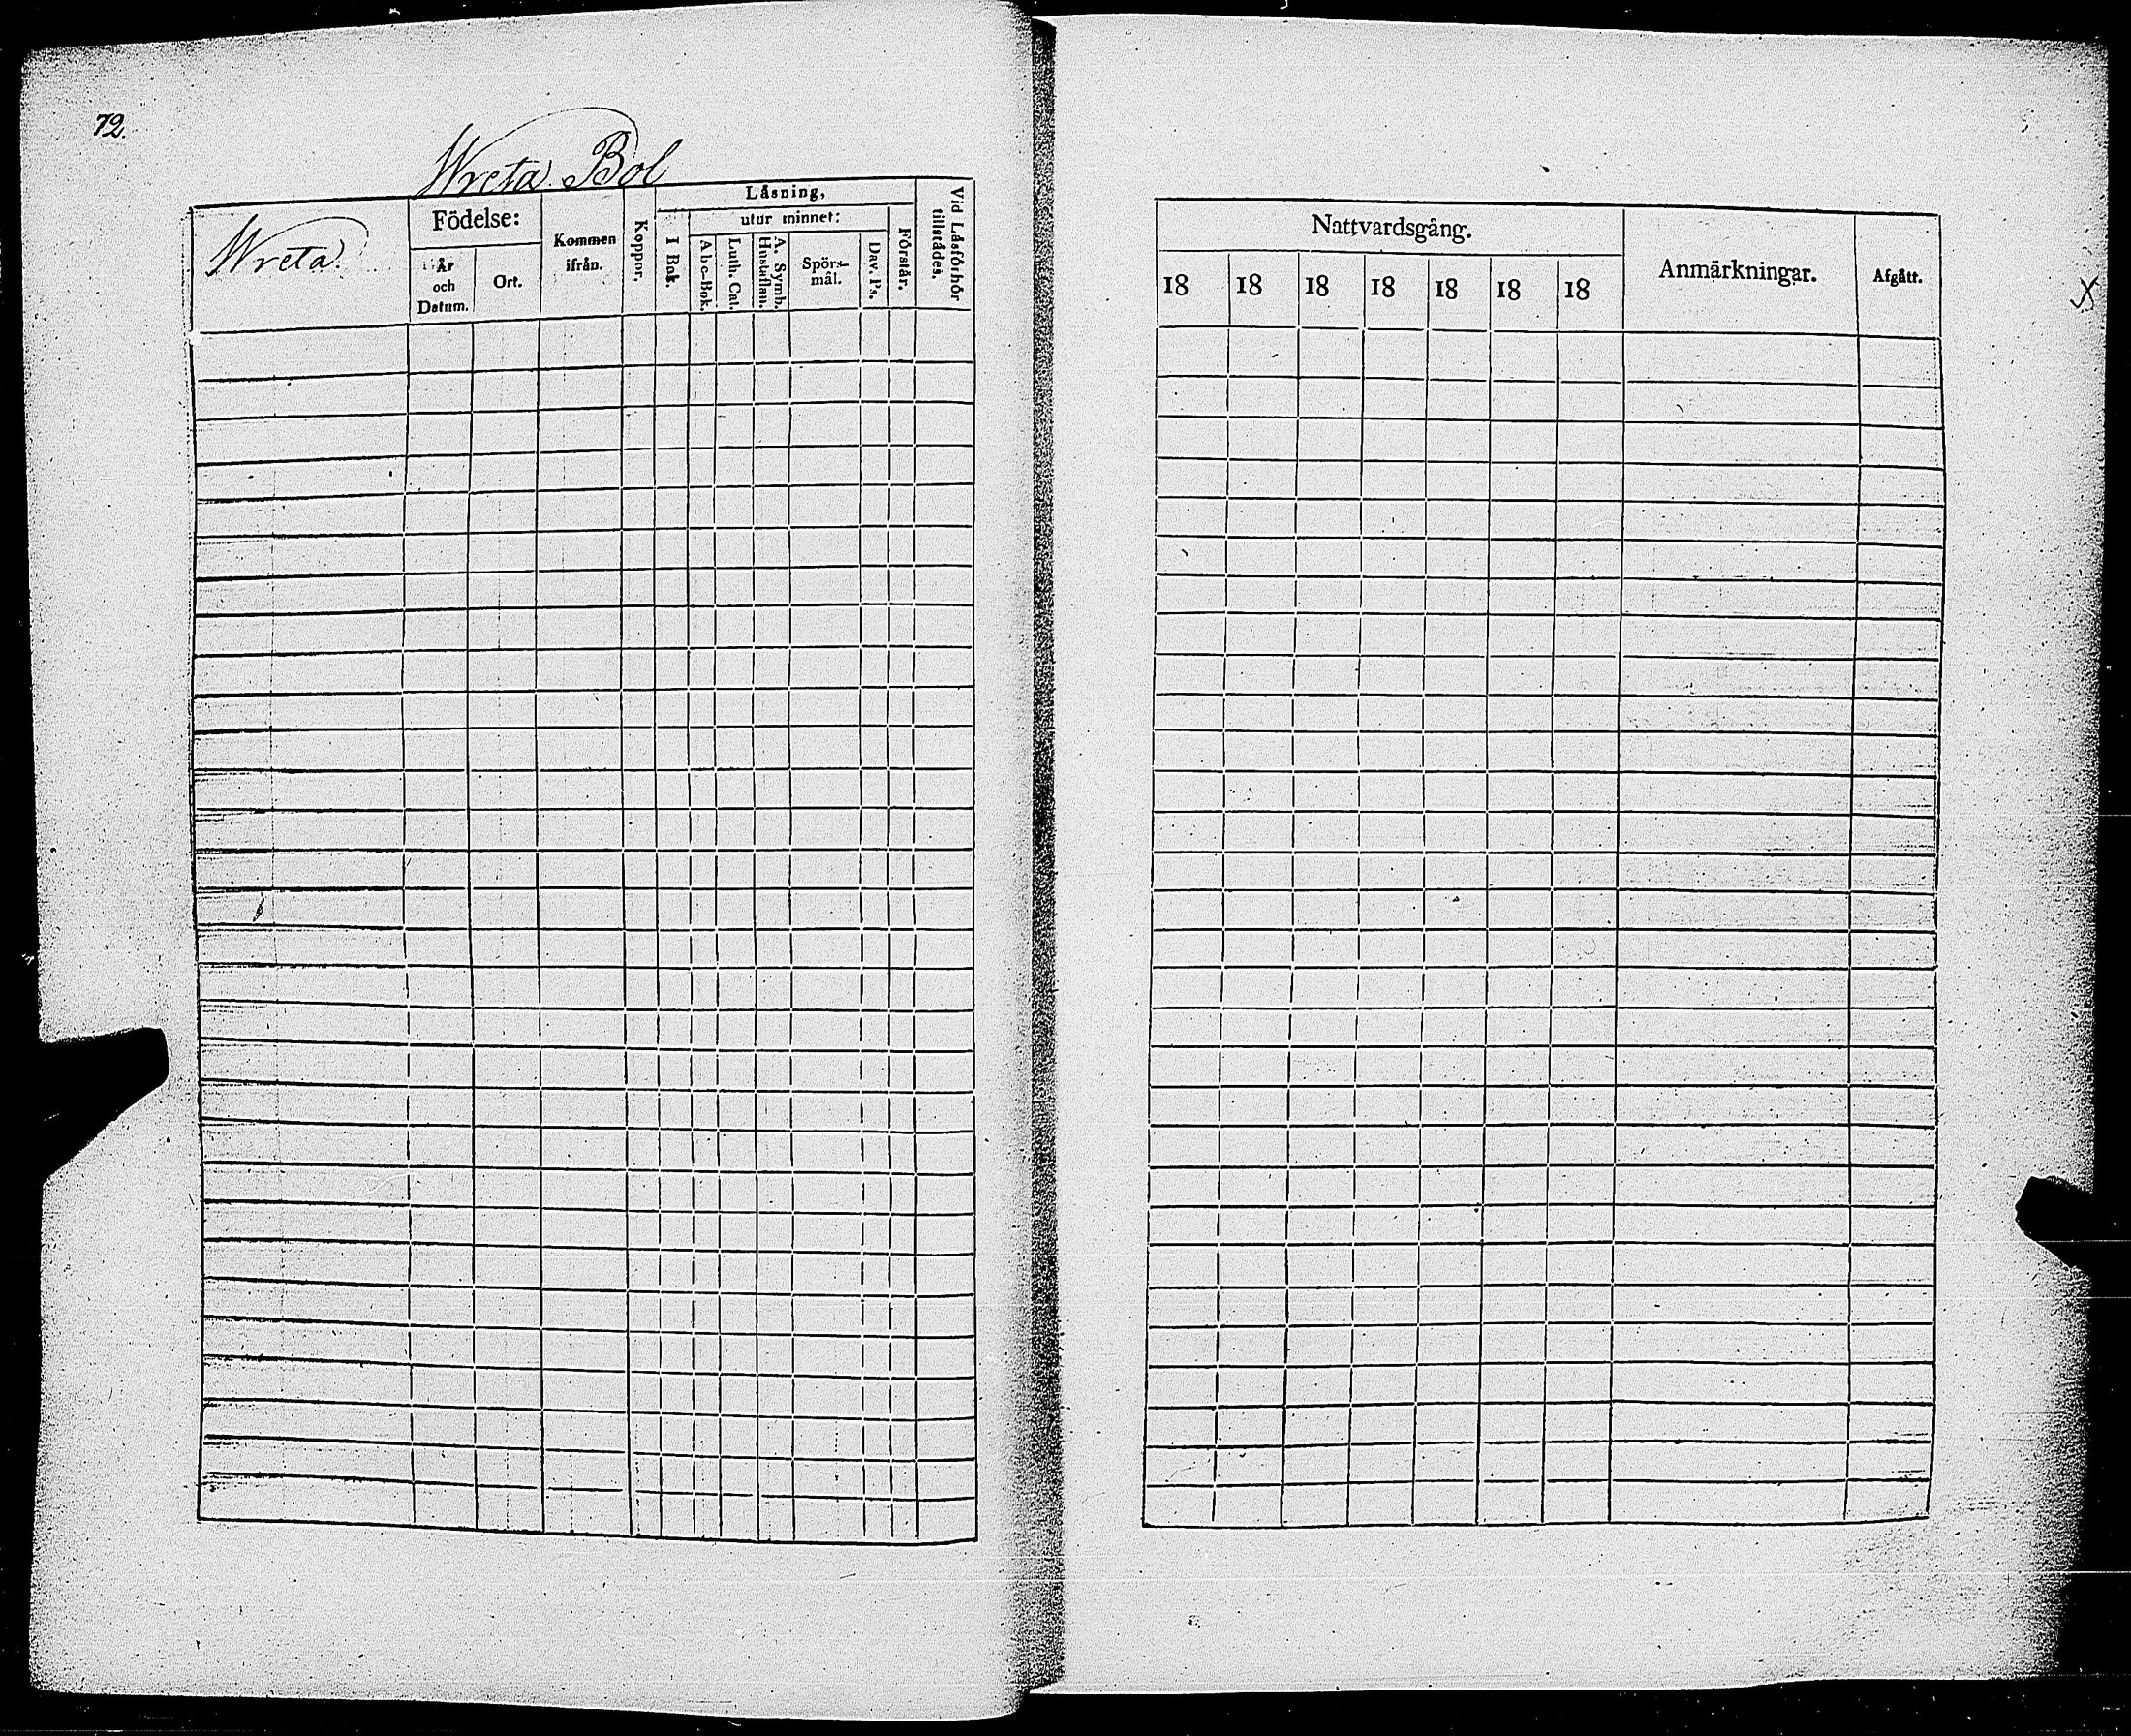 72.
Wreta Bol
Wreta.
Födelse:
År
och
Datum.
Ort.
Kommen
ifrån.
Koppor.
Låsning,
I Bok.
utur minnet:
Abc-Bok.
Luth. Cat.
A. Symb.
Hustaflan.
Spörs-
mål.
Dav. Ps.
Förstår.
Vid Låsförhör
tillstädes.
Nattvardsgång.
18 18 18 18 18 18 18
Anmärkningar.
Afgått.
X